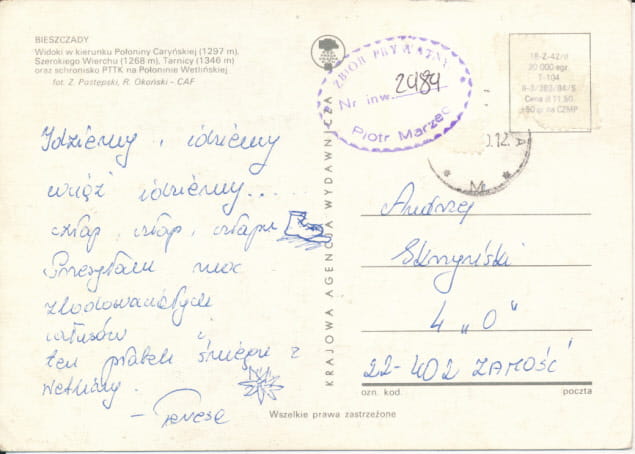 BIESZCZADY
Widoki w kierunku Połoniny Caryńskiej (1297 m),
Szerokiego Wierchu (1268 m), Tarnicy (1346 m)
oraz schronisko PTTK na Połoninie Wetlińskiej
fot. Z. Postępski, R. Okoński - CAF
Idziemy, idziemy
wciąż idziemy...
człap, człap, człapu
Przesyłam moc
zlodowaciałych
całusów i
ten płatek śniegu z
Wetliny.
- Teresa
KRAJOWA AGENCJA WYDAWNICZA
ZBIÓR PRYWATNY
Nr inw. 2484
Piotr Marzec
18-Z-42/II
20 000 egz.
T-104
Cena zł 11,50
+50 gr na CZMP
0.12.
Andrzej
Skrzyński
4 „0"
22-402 ZAMOŚĆ
ozn. kod. poczta
Wszelkie prawa zastrzeżone